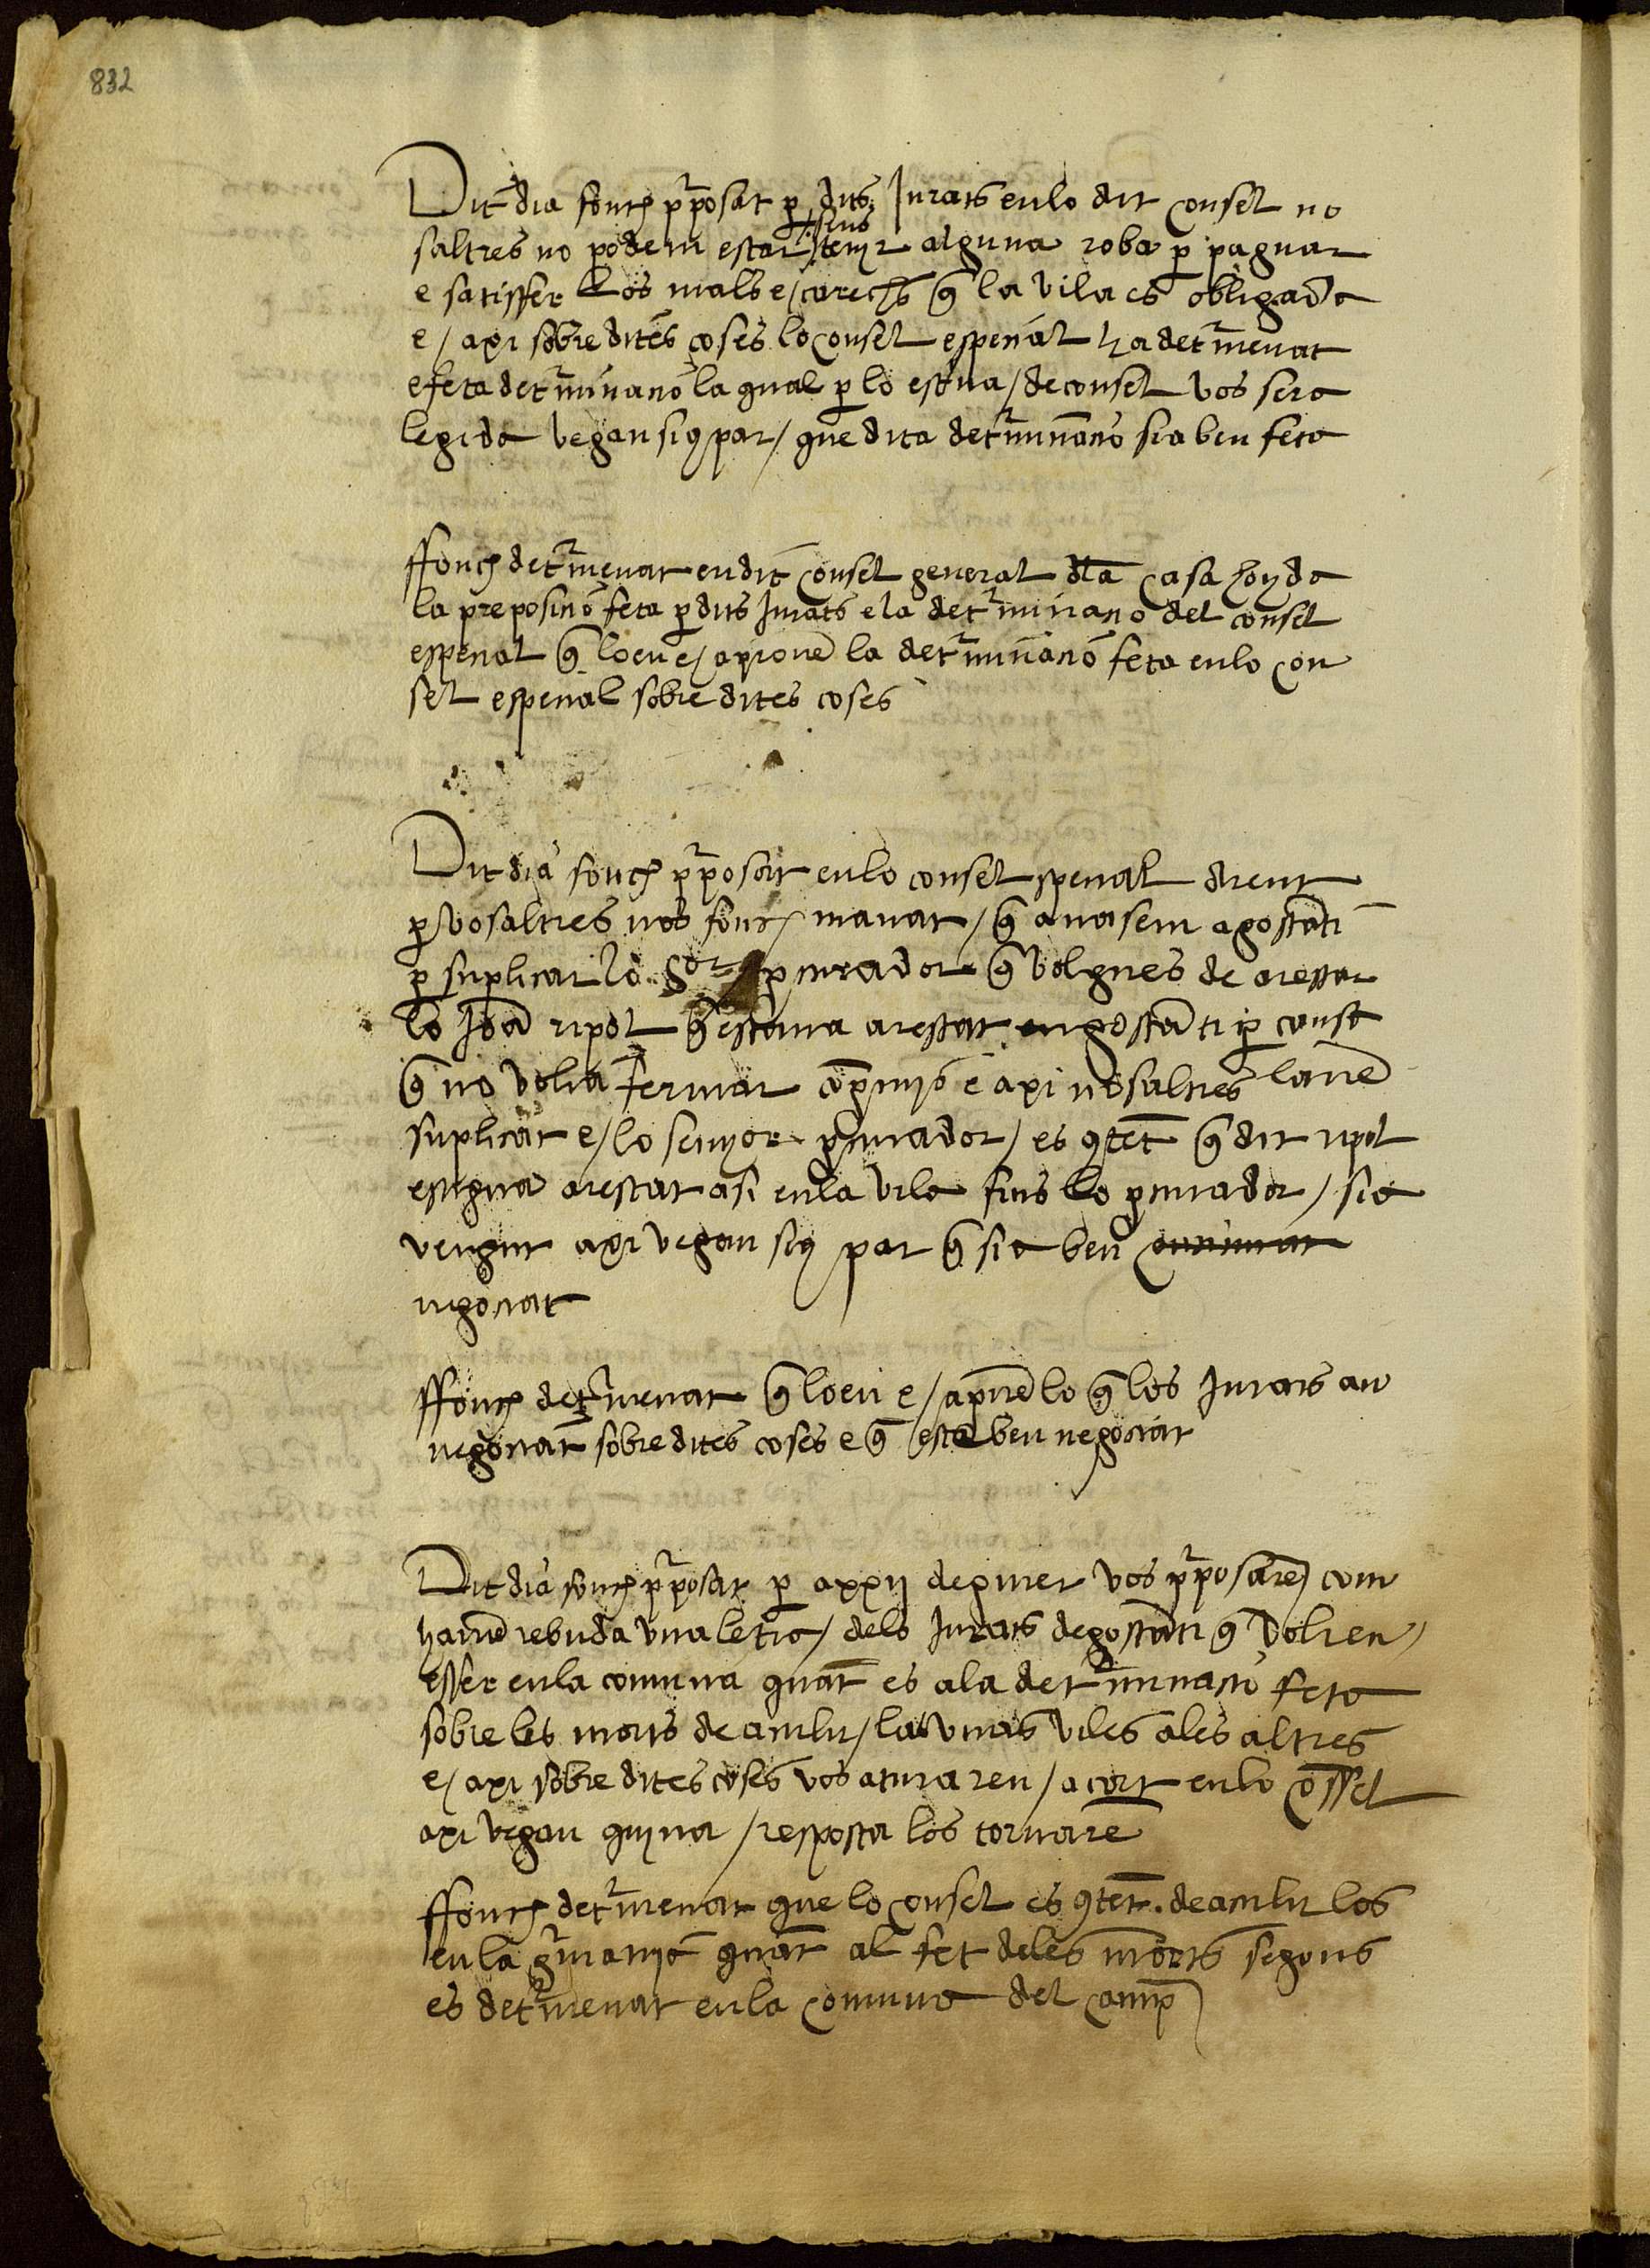 832
Dit dia fonch pposat p dits Jurats en lo dit consel no
saltres no podem estar sens tenir alguna roba p paguar
e satisffer los mals e/ carechs q̃ la vila es obligada
e/ axi sobre dites coses lo consel especial ha detmenat
e feta detminacio la qual p lo escriva/ de consel vos sera
legida vegan sius par/ que dita detminacio sia ben feta
ffonch detmenat en dit consel general dla casa hoyda
la preposicio feta p dits Jurats e la detminacio del consel
especial q̃ loen e/ aproue la detminacio feta en lo con
sel especial sobre dites coses
Dit dia fonch pposat en lo consel special dient
p vosaltres nos fonch manat/ q̃ anasem a gostati
p suplicar lo Sor pcurador q̃ volgues de arestar
lo Joa ripol q̃ estaua arestat en gostati p conse
q̃ no volia fermar cõpmis e axi nosaltres lauẽ
suplicat e/ lo senyor pcurador/ es cõtet q̃ dit ripol
estigua arestat asi en la vila fins lo pcurador/ sia
vengut axi vegan sius par q̃ sia ben
negociat
ffonch detmenat q̃ loen e/ aprouẽ lo q̃ los Jurats an
negociat sobre dites coses e q̃ esta ben negociat
Dit dia fonch pposat p a xxij de giner vos pposarẽ com
hauiẽ rebuda vna letra/ dels Jurats de gostati q̃ volien/
esser en la comuna quat es a la detminacio feta
sobre les morts de acullir/ las vnas viles a les altres
e/ axi sobre dites coses vos aturaren/ acort en lo cõssel
axi vegau quina/ resposta los tornarẽ
ffonch detmenat que lo consel es cõtet. de acullir los
en la gmanio quãt al fet de les morts segons
es detmenat en la comuna del camp